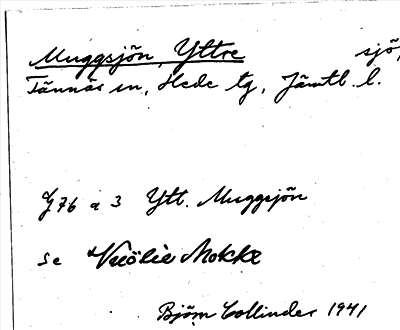 Muggsjön, Yttre sjö,
Tännäs sn, Hede tg, Jämtl. l.
J76 a 3 Ytt. Muggsjön
se Vuölie Mokke
Björn Collinder 1941